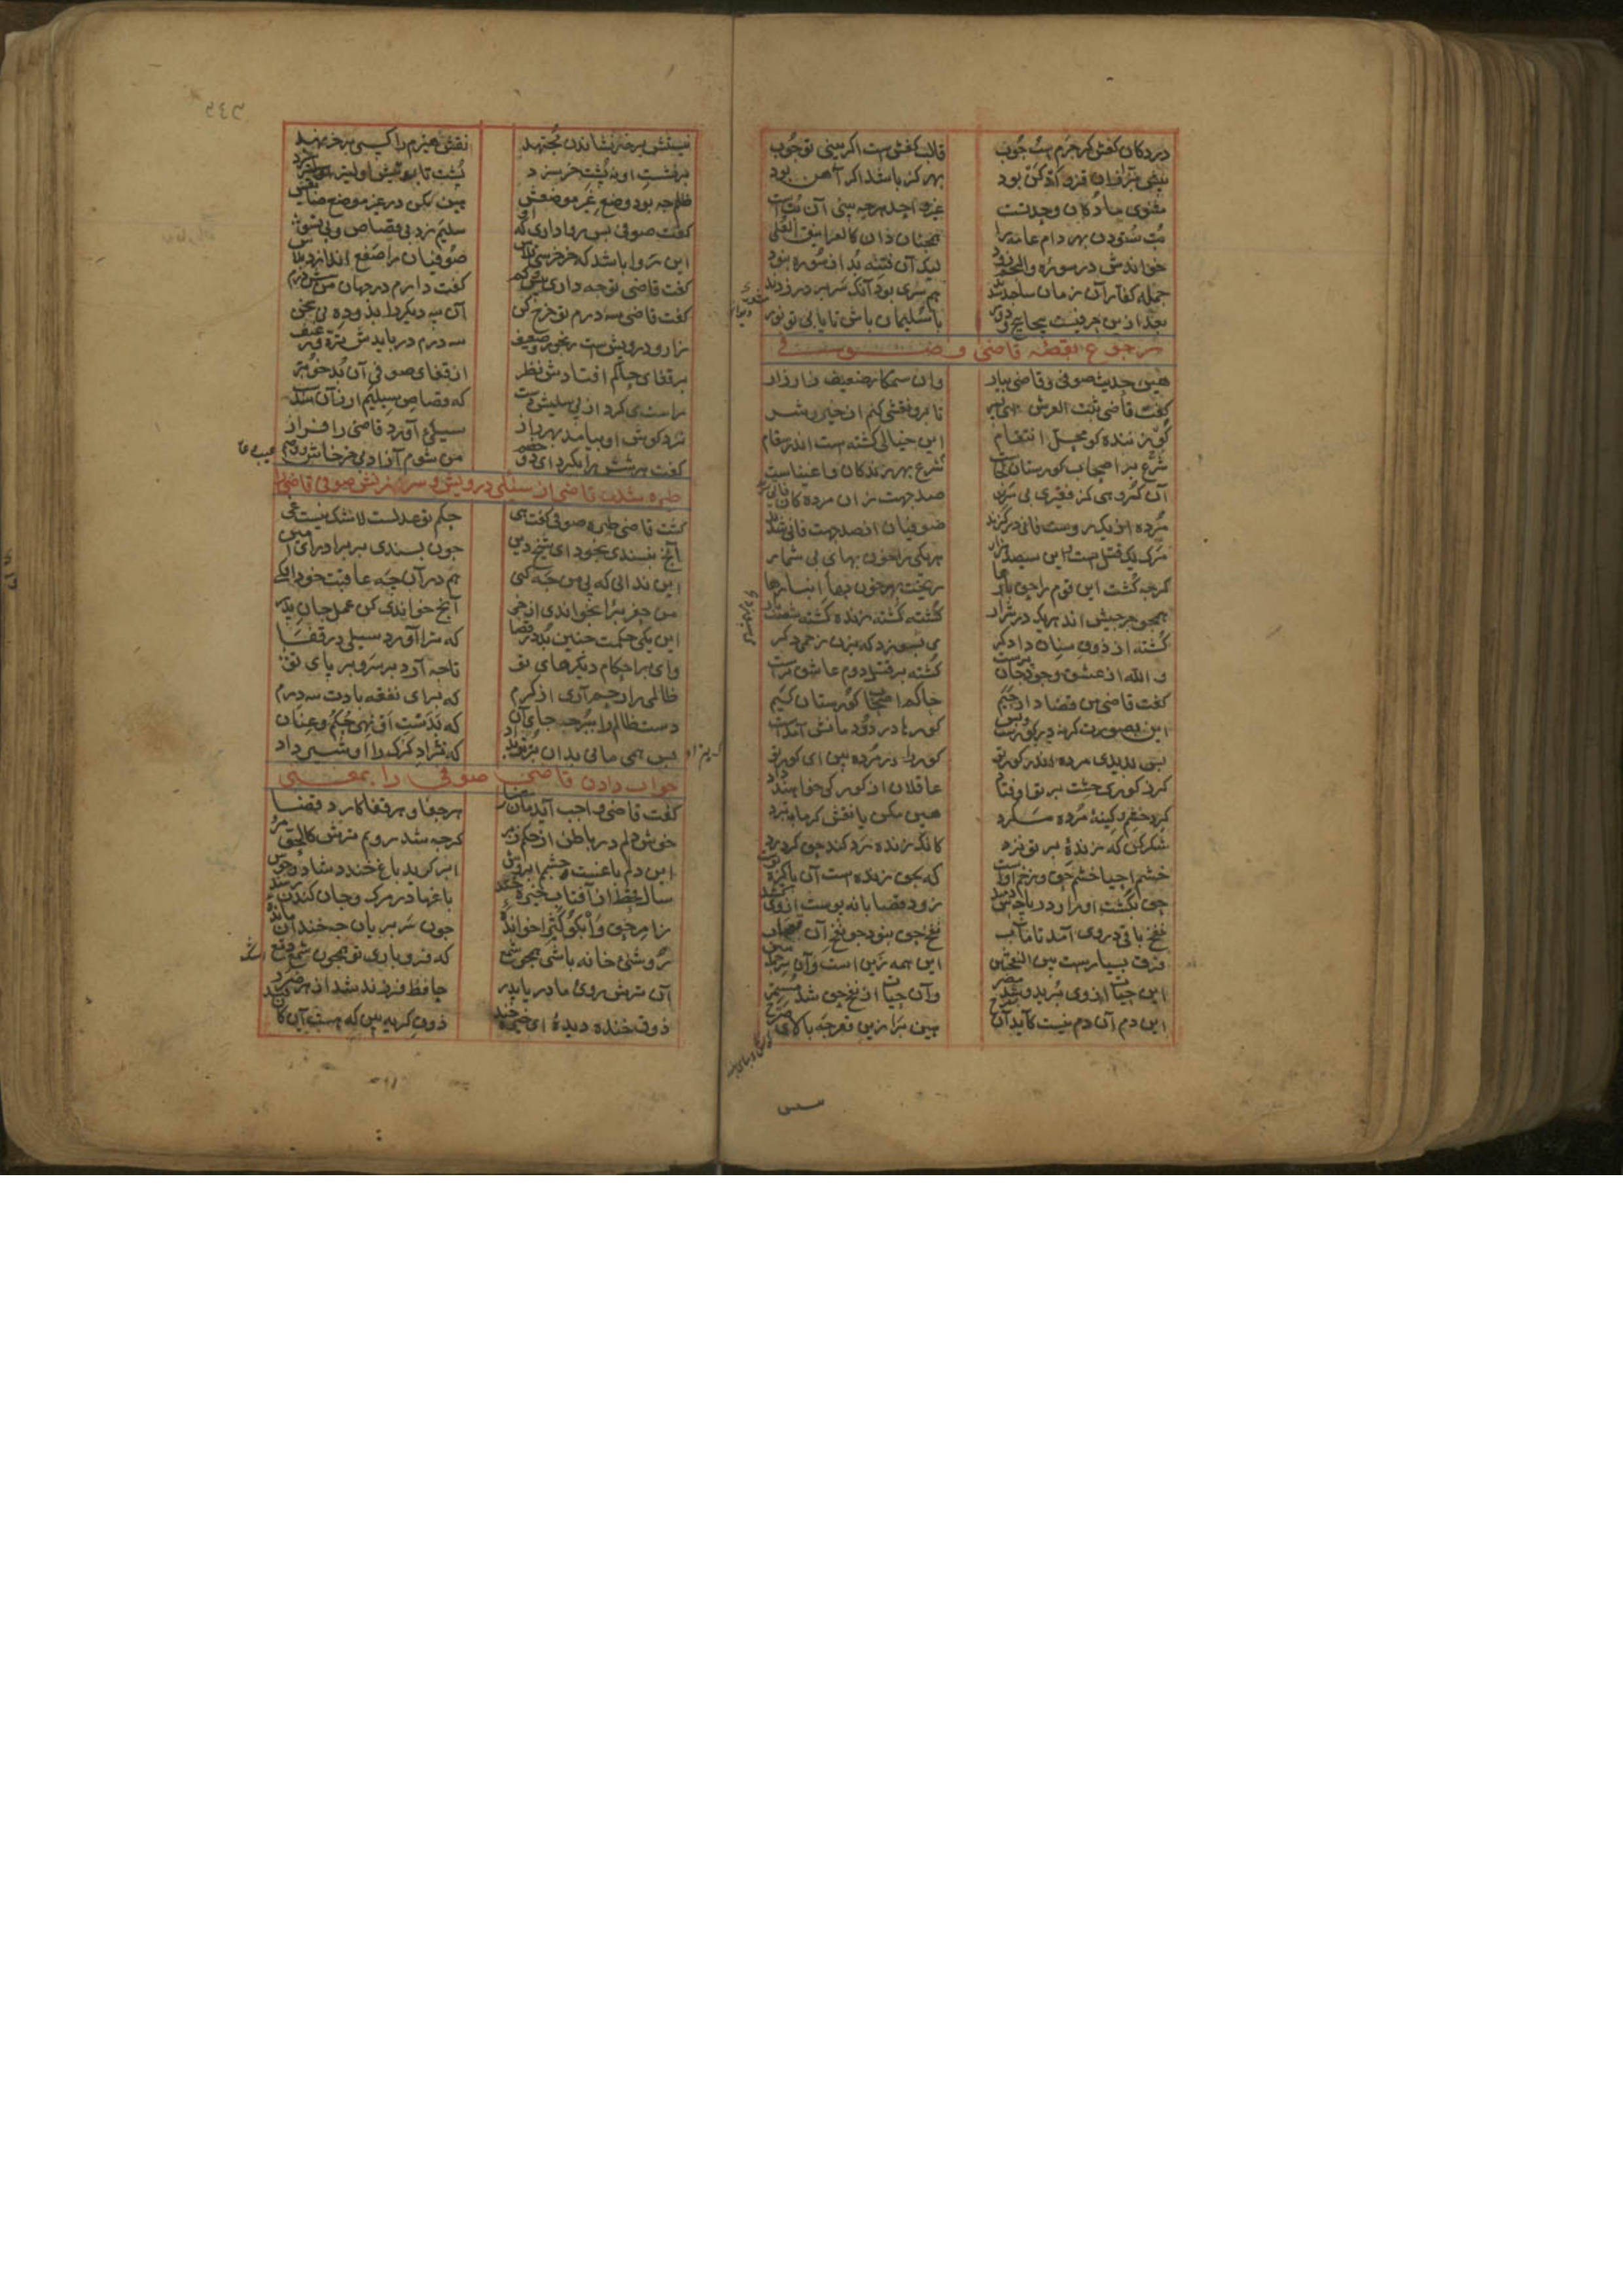 در دکان کفش کر چرم است خوب قالب کفش است اکر بینی تو چوب
پیش بزازان قز و ادکن بود بهر کز باشد اکر آهن بود
مثنوی ما دکان وحدتست غیر واحد هرچه بینی آن بت است
بت ستودن بهر دام عامه را همچنان دان کالغرانیق العلی
خواندش در سوره والنجم زود لیک آن فتنه بد از سوره نبود
جمله کفار آن زمان ساجد شدند هم سری بود آنک سر بر در زدند
بعد ازین حرفیست پیچاپیچ و دور با سلیمان باش
رجوع بقصه قاضی و صوفی
هین حدیث صوفی و قاضی بیار وان ستمکار ضعیف زار زار
کفت قاضی ثبت العرش ای پسر تا برو نقشی کنم از خیر و شر
کو زننده کو محل انتقام این خیالی کشته است اندر سقام
شرع بر اصحاب کورستان کجاست شرع بهر زندکان و اغنیاست
آن کروهی کز فقیری بی سرند صد جهت زان مردکان فانی
مرده از یک روست فانی در کزند صوفیان از صد جهت فانی شدند
مرک یک قتل است این سیصد هزار هر یکی را خونبهای بی شمار
کرچه کشت این قوم را حق بارها ریخت بهر خونبها انبارها
همچو جرجیس اند هر یک در سرار کشته کشته زنده کشته شصت بار
کشته از ذوق سنان دادکر می بسوزد که بزن زخمی دکر
والله از عشق وجود جان پرست کشته بر قتل دوم عاشق ترست
کفت قاضی من قضادار حیم حاکم اصحاب کورستان کیم
این بصورت کر نه در کورست پست کورها در دودمانش آمدست
بس بدیدی مرده اندر کور تو کور را در مرده بین ای کور تو
کر ز کوری خشت بر تو اوفتاد عاقلان از کور کی خواهند داد
کرد خشم و کینه مرده مکرد هین مکن با نقش کرمابه نبرد
شکر کن که زنده بر تو نزد کانک زنده رد کند حق کرد رد
خشم احیا خشم حق و زخم اوست که بحق زنده است آن پاکیزه پوست
حق بکشت او را و در پاچه‌ش دمید زود قصابانه پوست از وی کشید
نفخ باقی دروی آمد تا مآب نفخ حق نبود چو نفخ آن قصاب
فرق بسیارست بین النفختین این همه زین است و آن سر جمله شین
این حیات از وی برید و شد مضر وان حیات از نفخ حق شد مستمر
این دم آن دم نیست کاید آن بشرح هین برا زین قعر چه بالای صرح
نیستش بر خر نشاندن مجتهد نقش هیزم را کسی بر خر نهد
بر نشست او نه پشت خر سزد پشت تابوتیش اولیتر سزد
ظلم چه بود وضع غیر موضعش هین مکن در غیر موضع ضایعش
کفت صوفی پس روا داری که او سیلیم زد بی قصاص و بی تسو
این روا باشد که خر خرسی قلاش صوفیان را صفع اندازد بلاش
کفت قاضی تو چه داری بیش و کم کفت دارم در جهان من شش درم
کفت قاضی سه درم تو خرج کن آن سه دیکر را بدو ده بی سخن
زار و درویش است و رنجور و ضعیف سه درم در بایدش تره و رغیف
بر قفای حاکم افتادش نظر از قفای صوفی آن بد خوبتر
راست می کرد از پی سیلیش دست که قصاص سیلیم ارزان شدست
نزد کوش او بیامد بهر راز سیلیی آورد قاضی را فراز
کفت هر شش را بکیرد ای دو خصم من شوم آزاد بی خرخاش و وصم
طیره شدن قاضی از سیلی درویش و سرزنش صوفی قاضی را
کشت قاضی طیره صوفی کفت هی حکم تو عدلست لاشک نیست غی
آنچ نپسندی بخود ای شیخ دین چون پسندی بر برادر ای امین
این ندانی که پی من چه کنی هم در آن چه عاقبت خود افکنی
من حفر بئرا نخواندی از خبر آنچ خواندی کن عمل جان پدر
این یکی حکمت چنین بد در قضا که ترا آورد سیلی در قفا
وای بر احکام دیکرهای تو تا چه آرد بر سر و بر پای تو
ظالمی را رحم آری از کرم که برای نفقه بادت سه درم
دست ظالم را ببر چه جای آن که بدست او نهی حکم و عنان
تو بدان بز مانی ای مجهول داد که نژاد کرک را او شیر داد
جواب دادن قاضی صوفی را بمعنی
کفت قاضی واجب آیدمان رضا هر جفا و هر قفا کارد قضا
خوش دلم در باطن از حکم زبر کرچه شد رویم ترش کالحق مر
این دلم باغست و چشمم ابروش ابر کرید باغ خندد شاد و خوش
سال قحط از آفتاب خیره خند باغها در مرک و جان کندن رسند
ز امر حق وابکوا کثیرا خوانده چون سر بریان چه خندان مانده
روشنی خانه باشی همچو شمع که فرو باری تو همچون شمع دمع
آن ترش رویی مادر یا پدر حافظ فرزند شد از هر ضرر
ذوق خنده دیده ای خیره خند ذوق کریه بین که هست آن کان قند